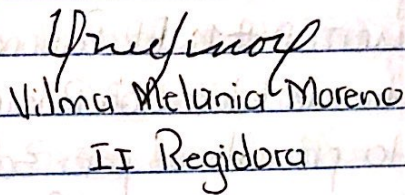 Vilma Melania Moreno
II Regidora